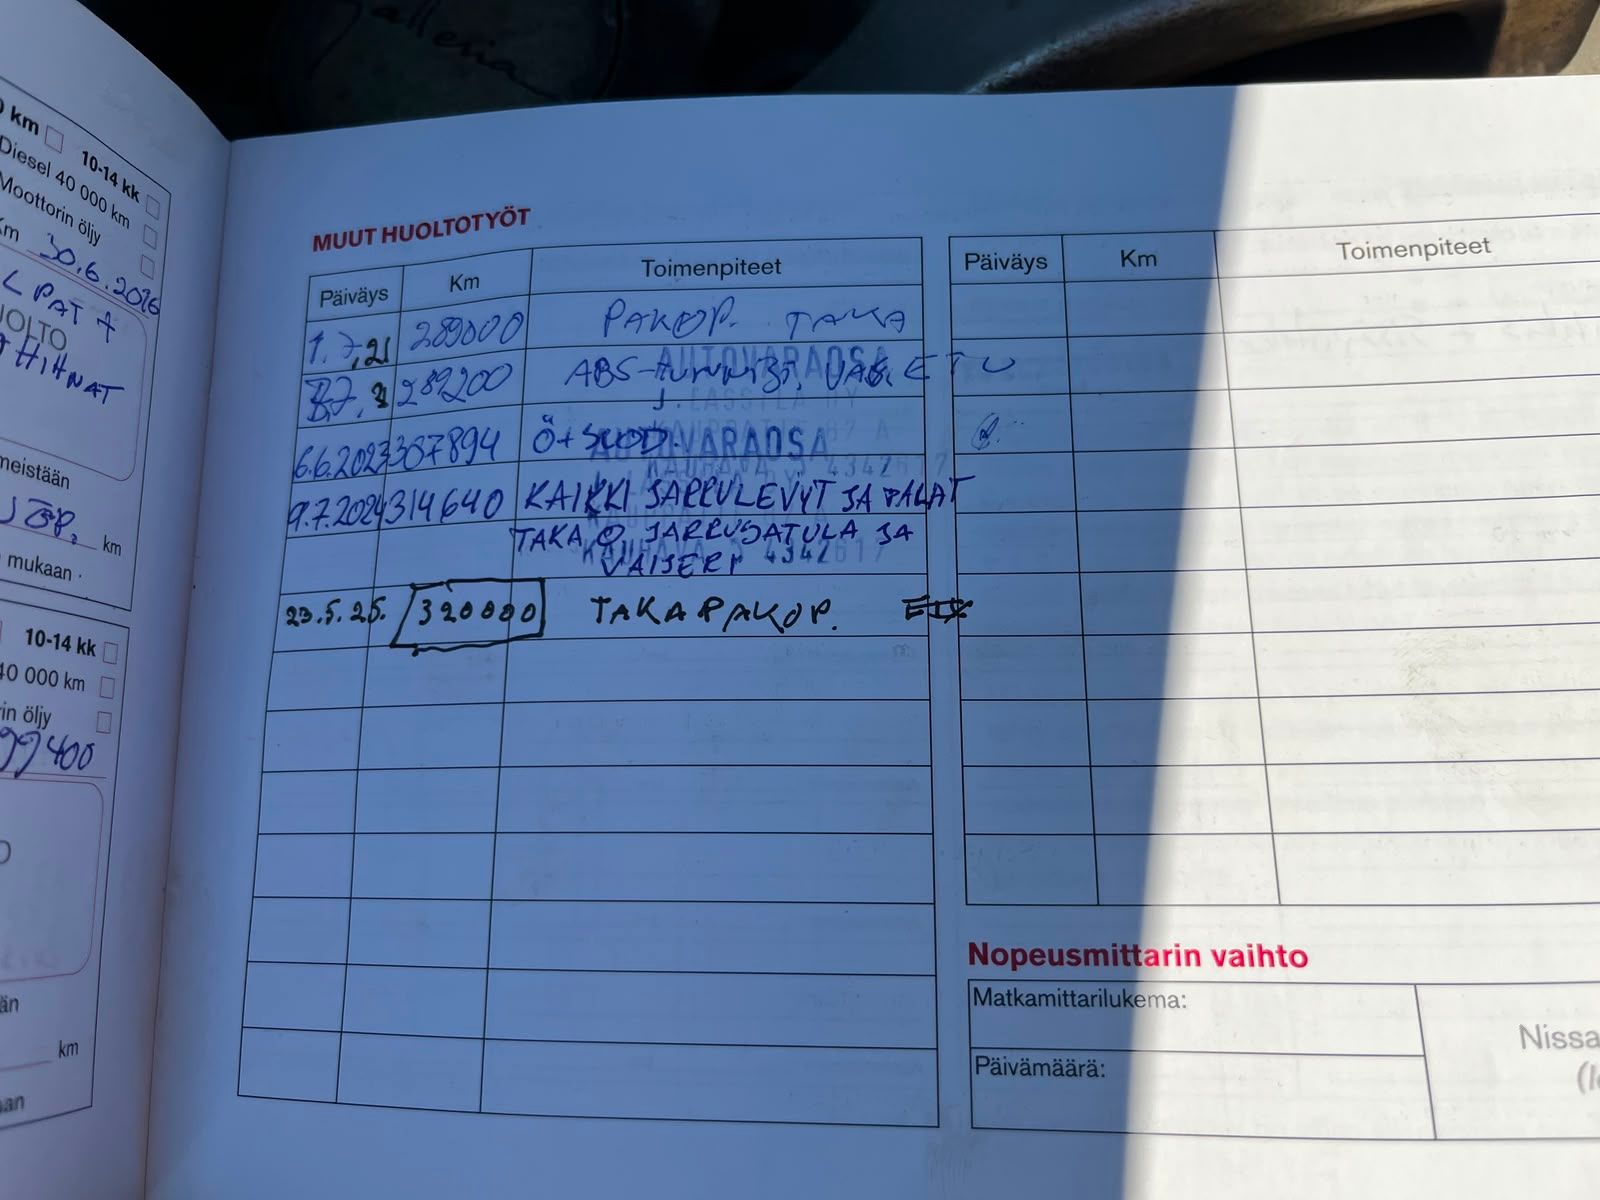 0 km
10-14 kk
Diesel 40 000 km
Moottorin öljy
km 30.6.2016
L PAT +
HIHNAT
meistään
km
mukaan
10-14 kk
40 000 km
rin öljy
99400
än
km
aan
MUUT HUOLTOTYÖT
Päiväys Km Toimenpiteet
1.7.21 289000 PAKOP. TAKA
289200 ABS- ETU
AUTOVARAOSA
J. LASSILA OY
6.6.2023 307894 Ö+SUOD.
AUTOVARAOSA
KAUHAVA 4342617
9.7.2024 314640 KAIKKI JARRULEVYT JA PALAT
TAKA O JARRUSATULA JA
KAUHAVA 4342617
VAIJERI
23.5.25. 320000 TAKAPAKOP.
Päiväys Km Toimenpiteet
Nopeusmittarin vaihto
Matkamittarilukema:
Päivämäärä:
Nissa